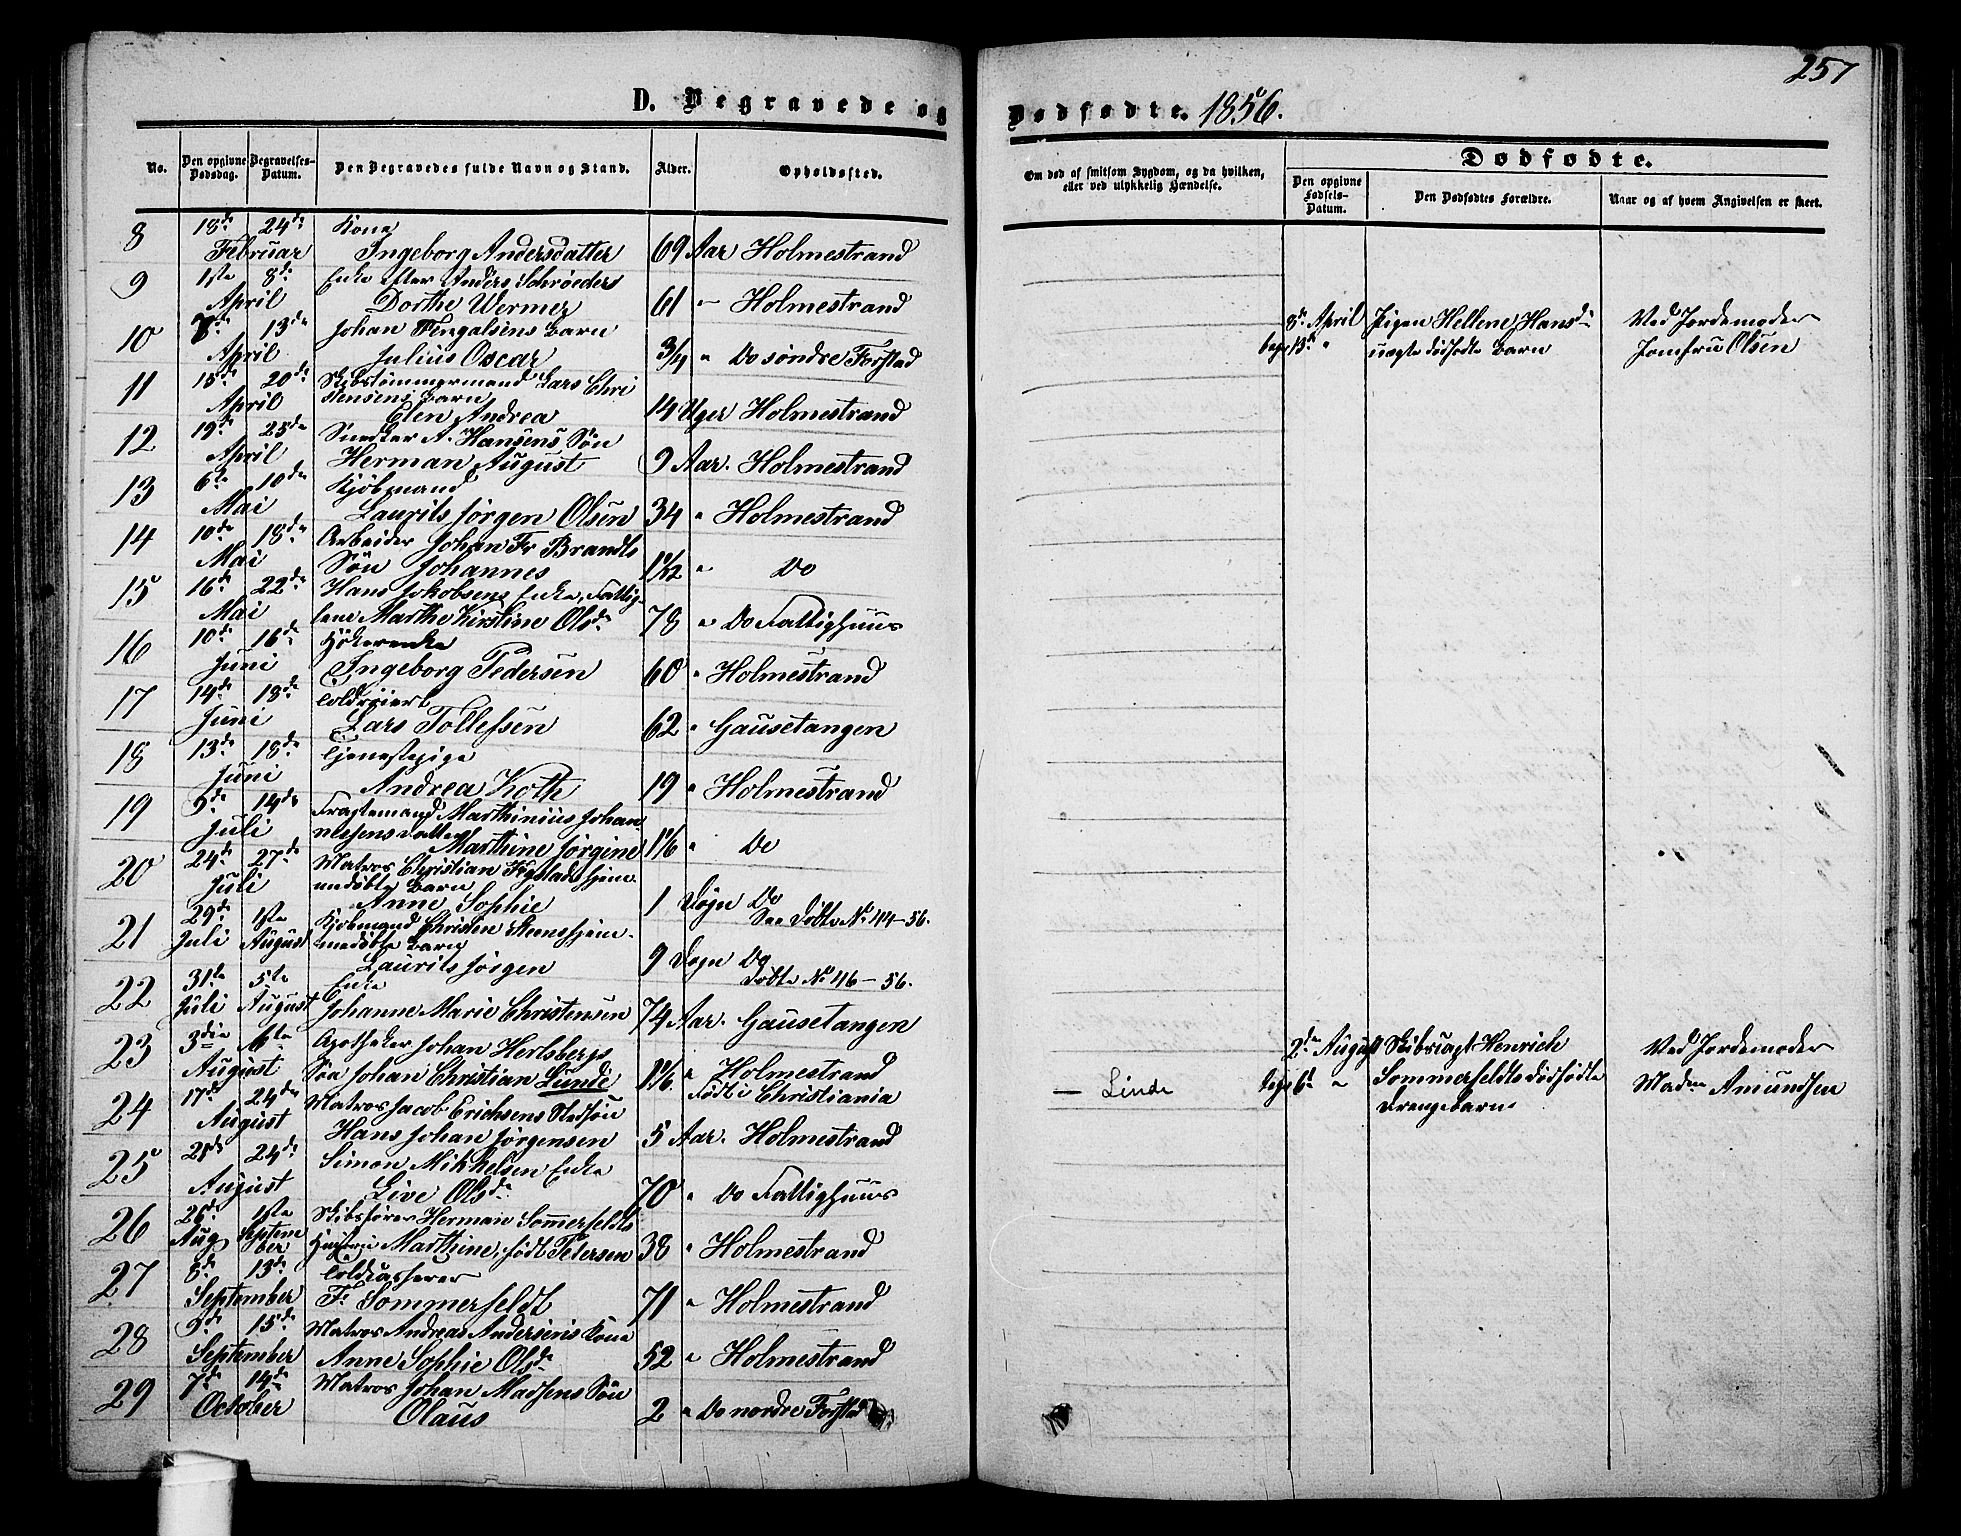 257
D. Begravede og Dødfødte. 1856.
No. Den opgivne Dødsdag. Begravelses-Datum. Den Begravedes fulde Navn og Stand. Alder. Opholdssted.
Om død af smitsom Sygdom, og da hvilken, eller ved ulykkelig Hændelse.
Dødfødte.
Den opgivne Fødsels-Datum. Den Dødfødtes Forældre. Naar og af hvem Angivelsen er skeet.
8 18de 24de Kone
Februar Ingeborg Andersdatter 69 Aar Holmestrand
9 1ste 8de Enke efter Anders Schrøeders
April Dorthe Wermer 61 " Holmestrand
10 13de Johan Fengalsens Barn
April Julius Oscar 3/4 " Do søndre Forstad
11 15de 20de Skibstømmermand Lars Chri
April stensens Barn
Elen Andrea 14 Uger Holmestrand
12 19de 25de Snedker A. Hansens Søn
April Herman August 9 Aar. Holmestrand
13 6te 10de Kjøbmand
Mai Laurits Jørgen Olsen 34 " Holmestrand
14 10de 18de Arbeider Johan Fr Brandts
Mai Søn Johannes " Do
15 16de 22de Hans Jakobsens Enke, Fattig-
Mai lem Marthe Kirstine Olsdr 78 " Do Fattighuus
16 10de 16de Høkerenke
Juni Ingeborg Pedersen 60 " Holmestrand
17 14de 18de Toldroiert
Juni Lars Tollefsen 62 " Gausetangen
18 13de 18de Tjenestepige
Juni Andrea Koth 19 " Holmestrand
19 9de 14de Fragtemand Marthinius Johan
Juli nessens Datter
Marthine Jørgine 1 1/6 " Do
20 24de 27de Matros Christian Fegstads hjem-
Juli medøbte Barn
Anne Sophie 1 Døgn Do
See Døbte No 44-56.
21 29de 1ste Kjøbmand Christen Steens hjem-
Juli August medøbte Barn
Laurits Jørgen 9 Døgn Do
Døbte No 46-56.
22 31te 5te Enke
Juli August Johanne Marie Christensen 74 Aar. Gausetangen
23 3die Apotheker Johan Herlsbergs
August Søn Johan Christian Lunde 1 1/6 " Holmestrand
Født i Christiania
24 17de 24de Matros Jacob Erichsens Stedsøn
August Hans Johan Jørgensen 5 Aar. Holmestrand
25 21de 24de Simon Mikkelsen Enke
August Live Olsdr 70 " Do Fattighuus
26 1ste Skibsfører Herman Sommerfeldts
Aug Septem
ber Hustru Marthine, født Petersen 38 " Holmestrand
27 8de 13de Toldkasserer
September Fr Sommerfeldt 71 " Holmestrand
28 9de 15de Matros Andreas Andersens Kone
September Anne Sophie Olsdr 52 " Holmestrand
29 7de 14de Matros Johan Madsens Søn
October Olaus 2 " Do nordre Forstad
8de April Pigen Hellene Hansdr Ved Jordemoder
begr 13de " uægte dødfødte Barn Jomfru Olsen
2de August Skibscapt Henrich Ved Jordemoder
— Linde begr 6te " Sommerfeldts dødfødte Madme Amundsen
Drengebarn